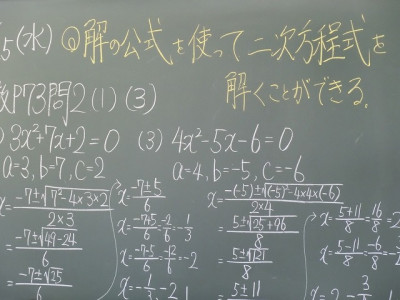 5(水) @解の公式を使って二次方程式を
解くことができる.
P73問2(1)(3)
3x²+7x+2=0 (3) 4x²-5x-6=0
a=3, b=7, c=2 a=4, b=-5, c=-6
x=\frac{-7±\sqrt{7²-4×3×2}}{2×3}
=\frac{-7±\sqrt{49-24}}{6}
=\frac{-7±\sqrt{25}}{6}
x=\frac{-7±5}{6}
x=\frac{-7+5}{6}=\frac{-2}{6}=-\frac{1}{3}
x=\frac{-7-5}{6}=\frac{-12}{6}=-2
x=-\frac{1}{3}, -2
x=\frac{-(-5)±\sqrt{(-5)²-4×4×(-6)}}{2×4}
=\frac{5±\sqrt{25+96}}{8}
=\frac{5±\sqrt{121}}{8}
=\frac{5±11}{8}
x=\frac{5+11}{8}=\frac{16}{8}=2
x=\frac{5-11}{8}=\frac{-6}{8}=
x=2, -\frac{3}{}